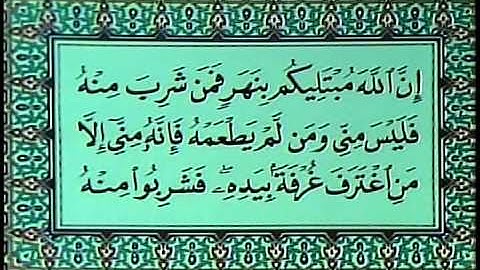 إِنَّ ٱللَّهَ مُبْتَلِيكُم بِنَهَرٍ فَمَن شَرِبَ مِنْهُ
فَلَيْسَ مِنِّى وَمَن لَّمْ يَطْعَمْهُ فَإِنَّهُۥ مِنِّىٓ إِلَّا
مَنِ ٱغْتَرَفَ غُرْفَةًۢ بِيَدِهِۦۚ فَشَرِبُوا۟ مِنْهُ